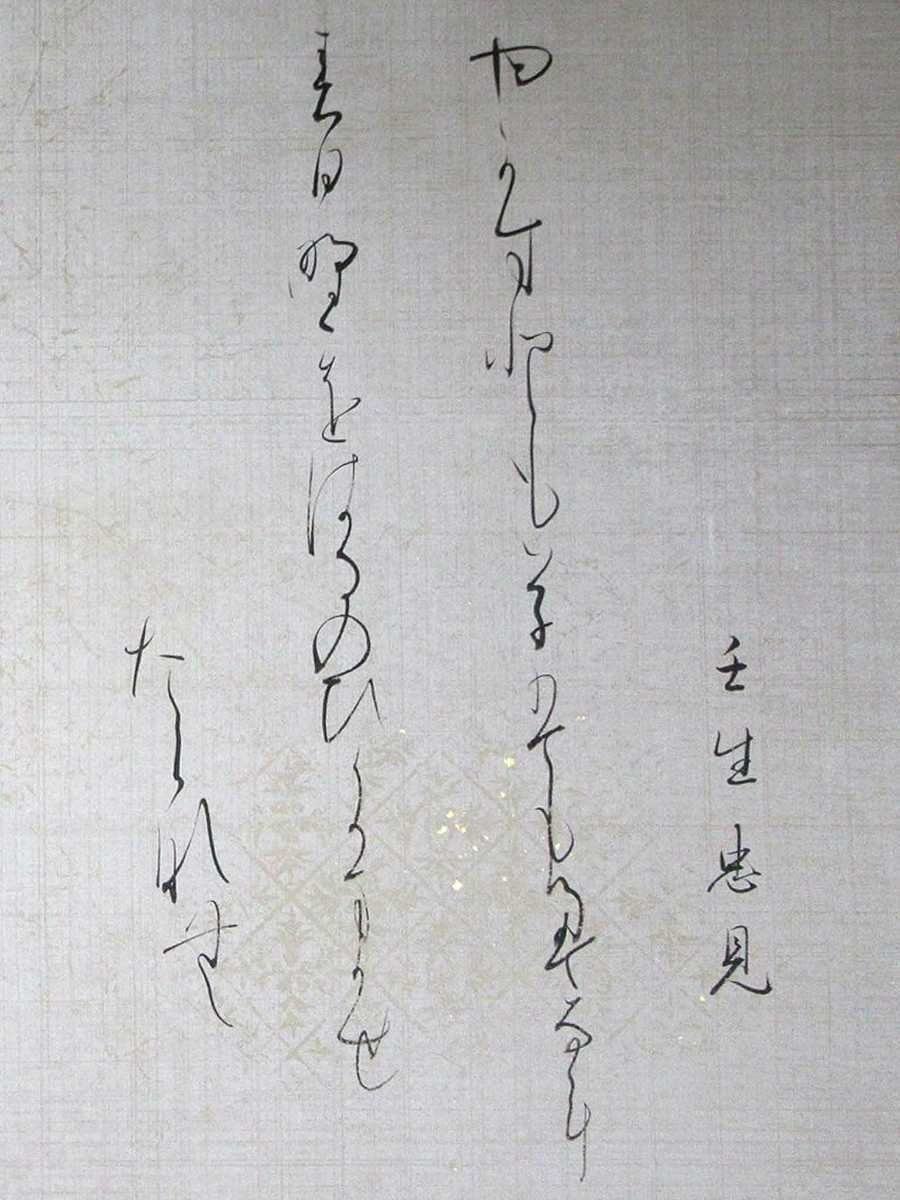 壬生忠見
やかすとも草はもえなむ
春日野をはるのひにまかせ
たらなむ